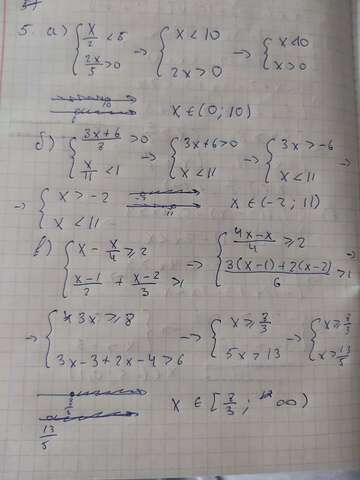 5. а) { x/2 < 5 ; 2x/5 > 0 → { x < 10 ; 2x > 0 → { x < 10 ; x > 0
10
x ∈ (0; 10)
б) { (3x+6)/3 > 0 ; x/11 < 1 → { 3x+6 > 0 ; x < 11 → { 3x > -6 ; x < 11 →
→ { x > -2 ; x < 11
-2
11
x ∈ (-2; 11)
в) { x - x/4 ≥ 2 ; (x-1)/2 + (x-2)/3 > 1 → { (4x-x)/4 ≥ 2 ; (3(x-1)+2(x-2))/6 > 1 →
→ { 3x ≥ 8 ; 3x-3+2x-4 > 6 → { x ≥ 8/3 ; 5x > 13 → { x ≥ 8/3 ; x > 13/5
8/3
13/5
x ∈ [8/3; ∞)